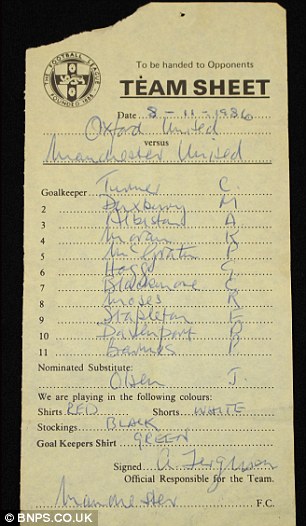 THE FOOTBALL LEAGUE
FOUNDED 1888
To be handed to Opponents
TEAM SHEET
Date 8-11-1986
Oxford United
versus
Manchester United
Goalkeeper Turner C
2 Duxbury M
3 Albiston A
4 Moran K
5 McGrath P
6 Hogg G
7 Blackmore C
8 Moses R
9 Stapleton F
10 Davenport P
11 Barnes P
Nominated Substitute:
Olsen J.
We are playing in the following colours:
Shirts RED Shorts WHITE
Stockings BLACK
Goal Keepers Shirt GREEN
Signed A Ferguson
Official Responsible for the Team.
Manchester F.C.
© BNPS.CO.UK